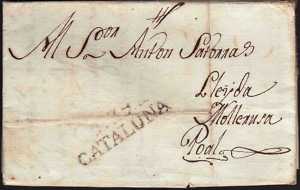 A Sr Don Anton Satorras
Lleyda
Mollerusa
Poal
CATALUÑA